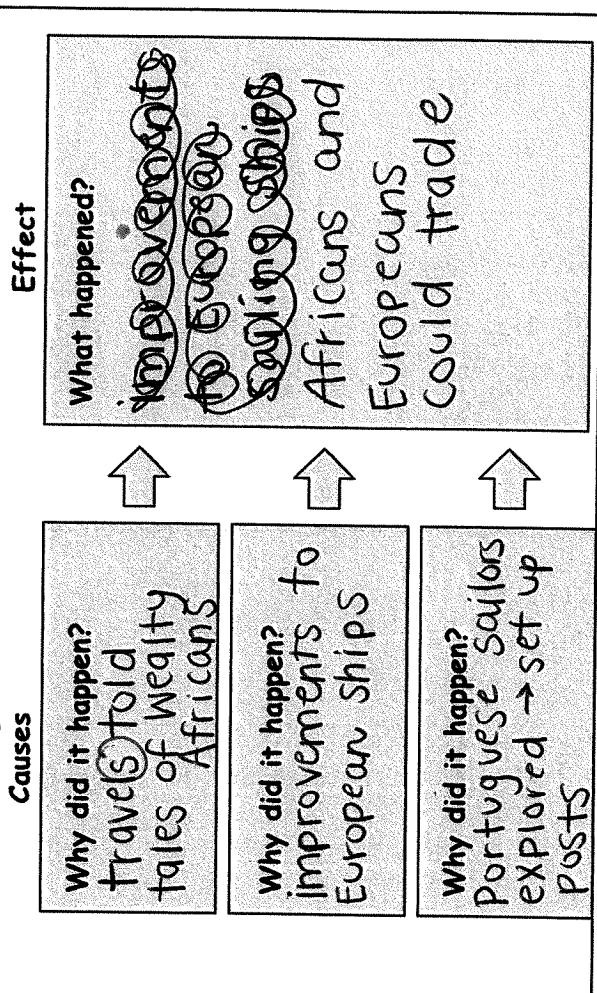 Causes
Why did it happen?
travels told
tales of wealty
Africans
Why did it happen?
improvements to
European ships
Why did it happen?
Portuguese sailors
explored → set up
posts
Effect
What happened?
improvements
to European
sailing ships
Africans and
Europeans
could trade